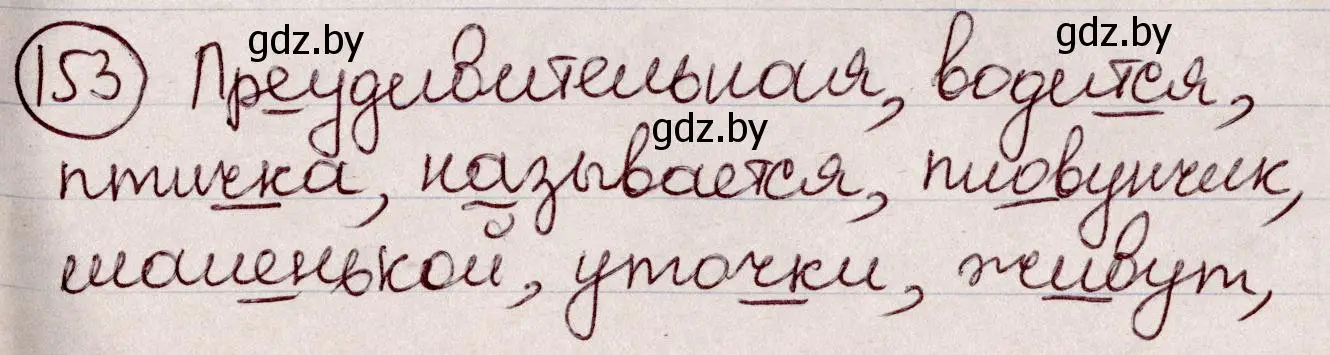 gdz.by gdz.by
153 Преудивительная, водится,
gdz.by
птичка, называется, пловунчик,
маленькой, уточки, живут,